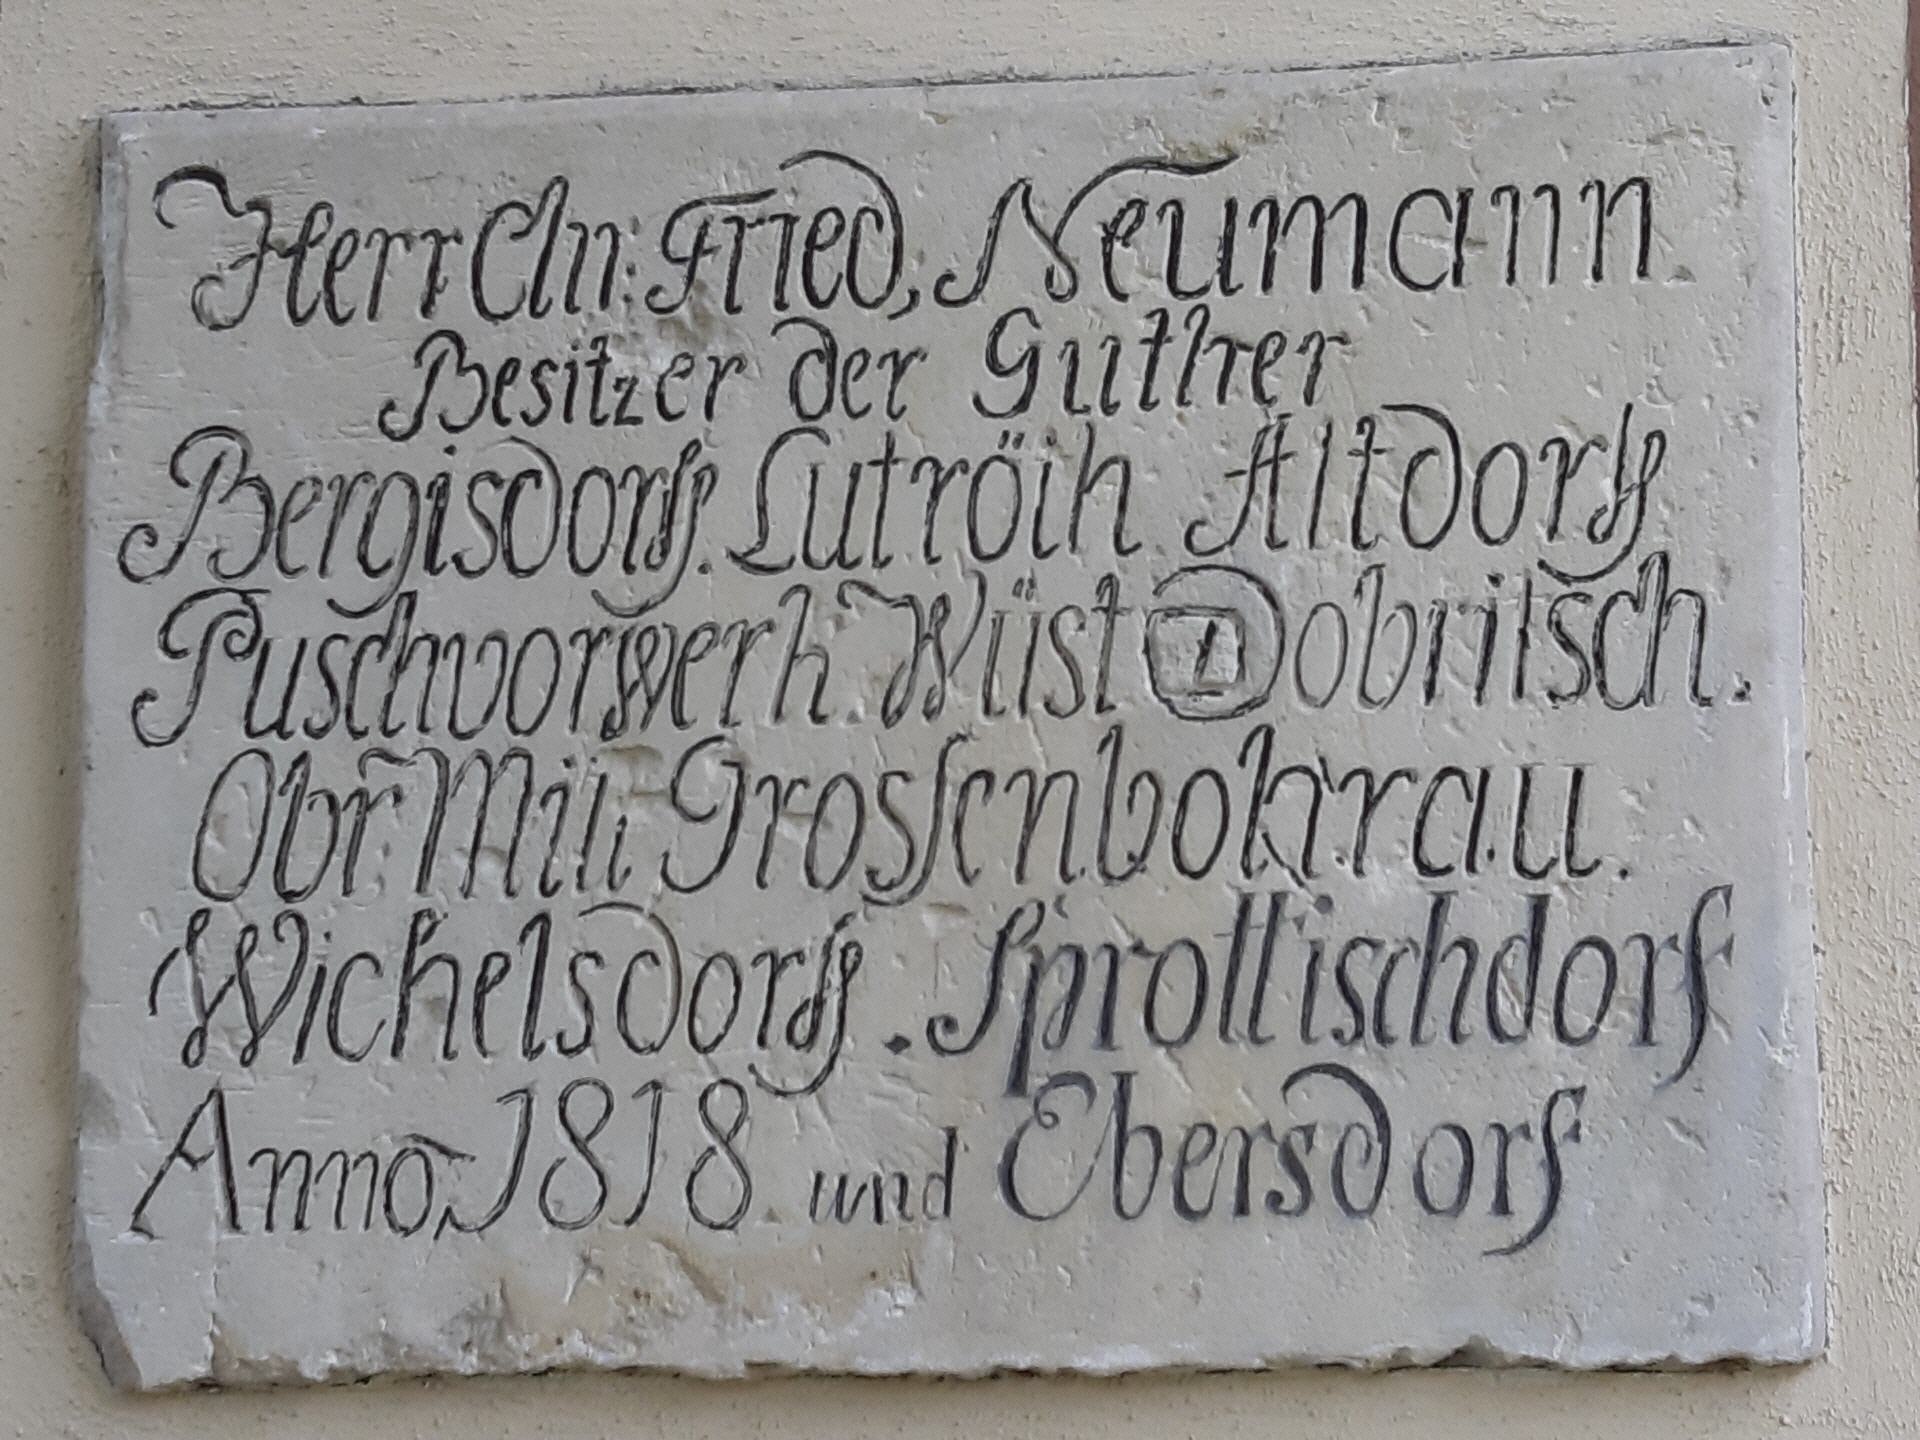 Herr Chr: Fried, Neumann.
Besitzer der Guther
Bergisdorff. Lutröih Altdorff
Puschvorwerk. Wüst Dobritsch.
Obr Mitl Grossenbohrau.
Wichelsdorff. Sprottischdorf
Anno 1818 und Ebersdorf